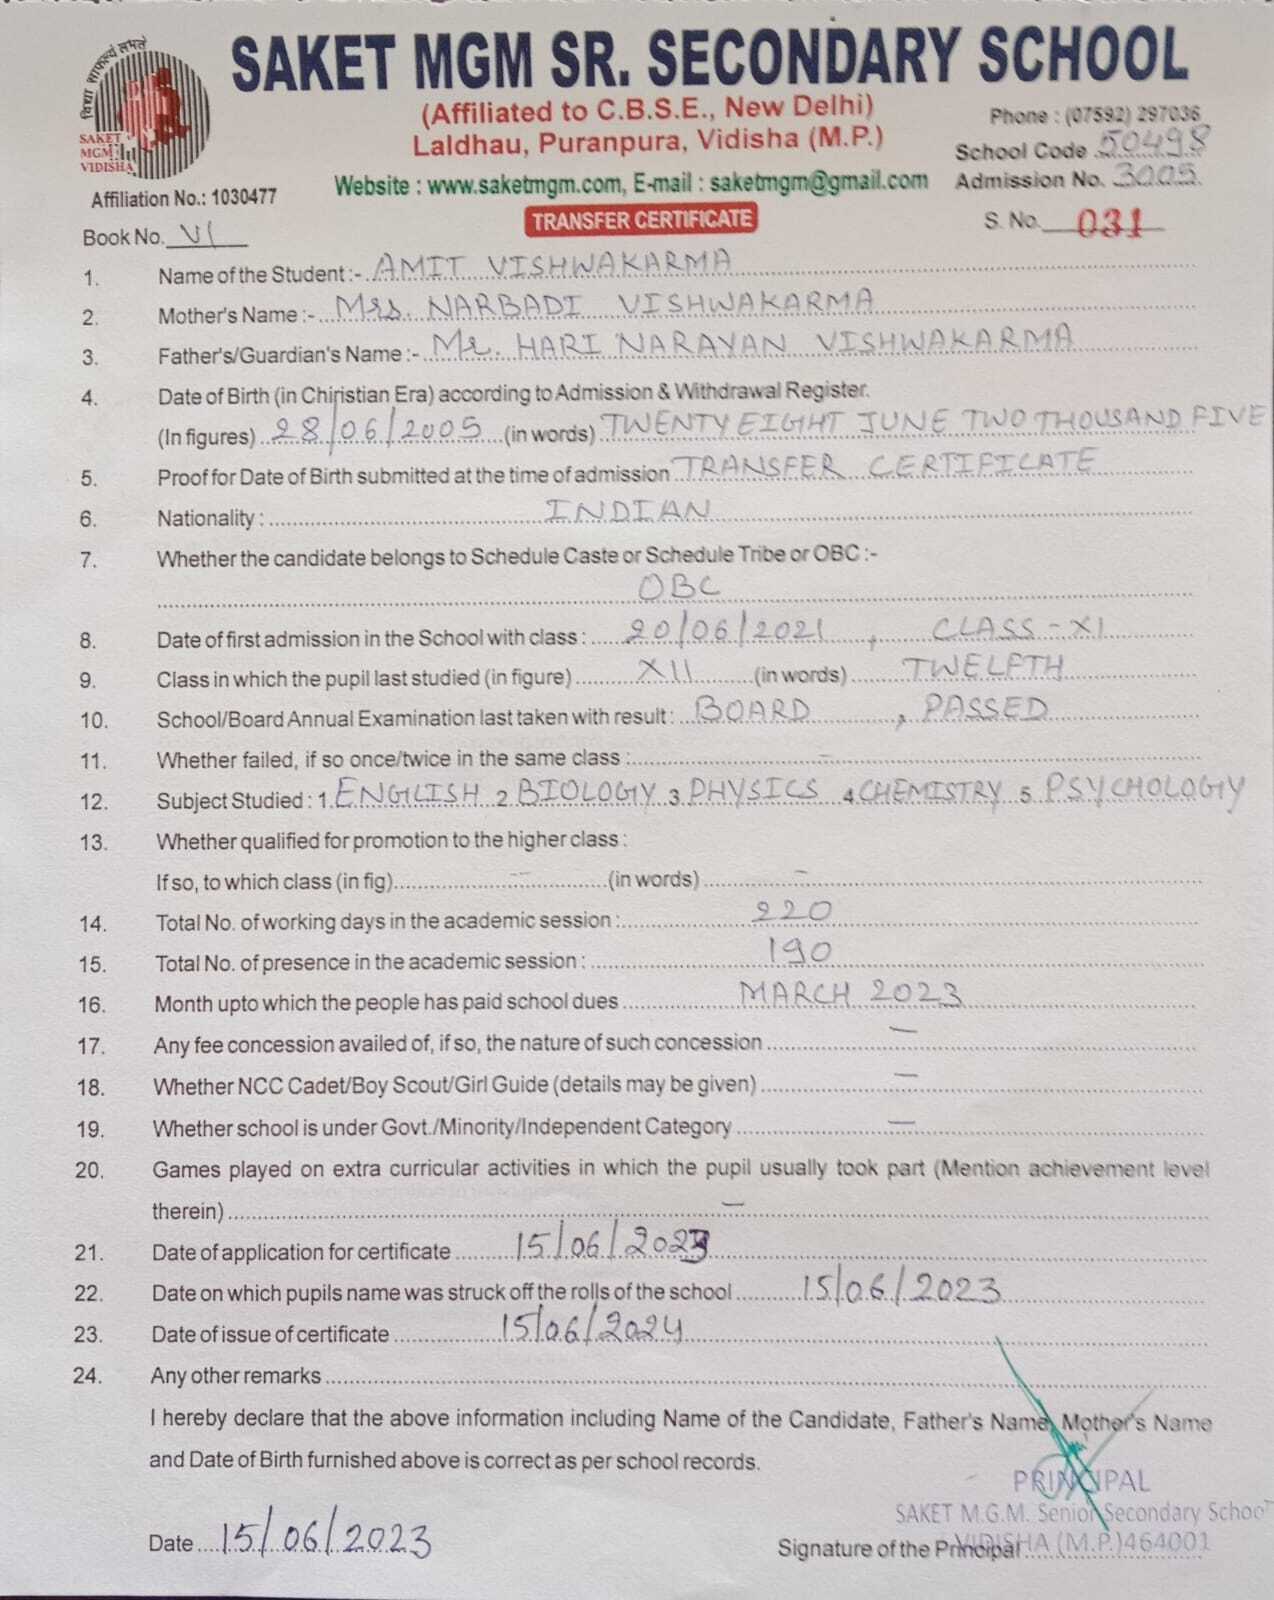 विद्या साफल्यं लभते
SAKET
MGM
VIDISHA
SAKET MGM SR. SECONDARY SCHOOL
(Affiliated to C.B.S.E., New Delhi)
Laldhau, Puranpura, Vidisha (M.P.)
Phone : (07592) 297036
School Code 50498
Website : www.saketmgm.com, E-mail : saketmgm@gmail.com
Admission No. 3005
Affiliation No.: 1030477
TRANSFER CERTIFICATE
Book No. VI
S. No. 031
1. Name of the Student :- AMIT VISHWAKARMA
2. Mother's Name :- Mrs. NARBADI VISHWAKARMA
3. Father's/Guardian's Name :- Mr. HARI NARAYAN VISHWAKARMA
4. Date of Birth (in Chiristian Era) according to Admission & Withdrawal Register.
(In figures) 28/06/2005 (in words) TWENTY EIGHT JUNE TWO THOUSAND FIVE
5. Proof for Date of Birth submitted at the time of admission TRANSFER CERTIFICATE
6. Nationality : INDIAN
7. Whether the candidate belongs to Schedule Caste or Schedule Tribe or OBC :-
OBC
8. Date of first admission in the School with class : 20/06/2021, CLASS - XI
9. Class in which the pupil last studied (in figure) XII (in words) TWELFTH
10. School/Board Annual Examination last taken with result : BOARD, PASSED
11. Whether failed, if so once/twice in the same class : -
12. Subject Studied : 1. ENGLISH 2 BIOLOGY 3 PHYSICS 4 CHEMISTRY 5 PSYCHOLOGY
13. Whether qualified for promotion to the higher class :
If so, to which class (in fig) - (in words) -
14. Total No. of working days in the academic session : 220
15. Total No. of presence in the academic session : 190
16. Month upto which the people has paid school dues MARCH 2023
17. Any fee concession availed of, if so, the nature of such concession -
18. Whether NCC Cadet/Boy Scout/Girl Guide (details may be given) -
19. Whether school is under Govt./Minority/Independent Category -
20. Games played on extra curricular activities in which the pupil usually took part (Mention achievement level
therein) -
21. Date of application for certificate 15/06/2023
22. Date on which pupils name was struck off the rolls of the school 15/06/2023
23. Date of issue of certificate 15/06/2024
24. Any other remarks
I hereby declare that the above information including Name of the Candidate, Father's Name, Mother's Name
and Date of Birth furnished above is correct as per school records.
PRINCIPAL
SAKET M.G.M. Senior Secondary School
VIDISHA (M.P.) 464001
Date 15/06/2023
Signature of the Principal